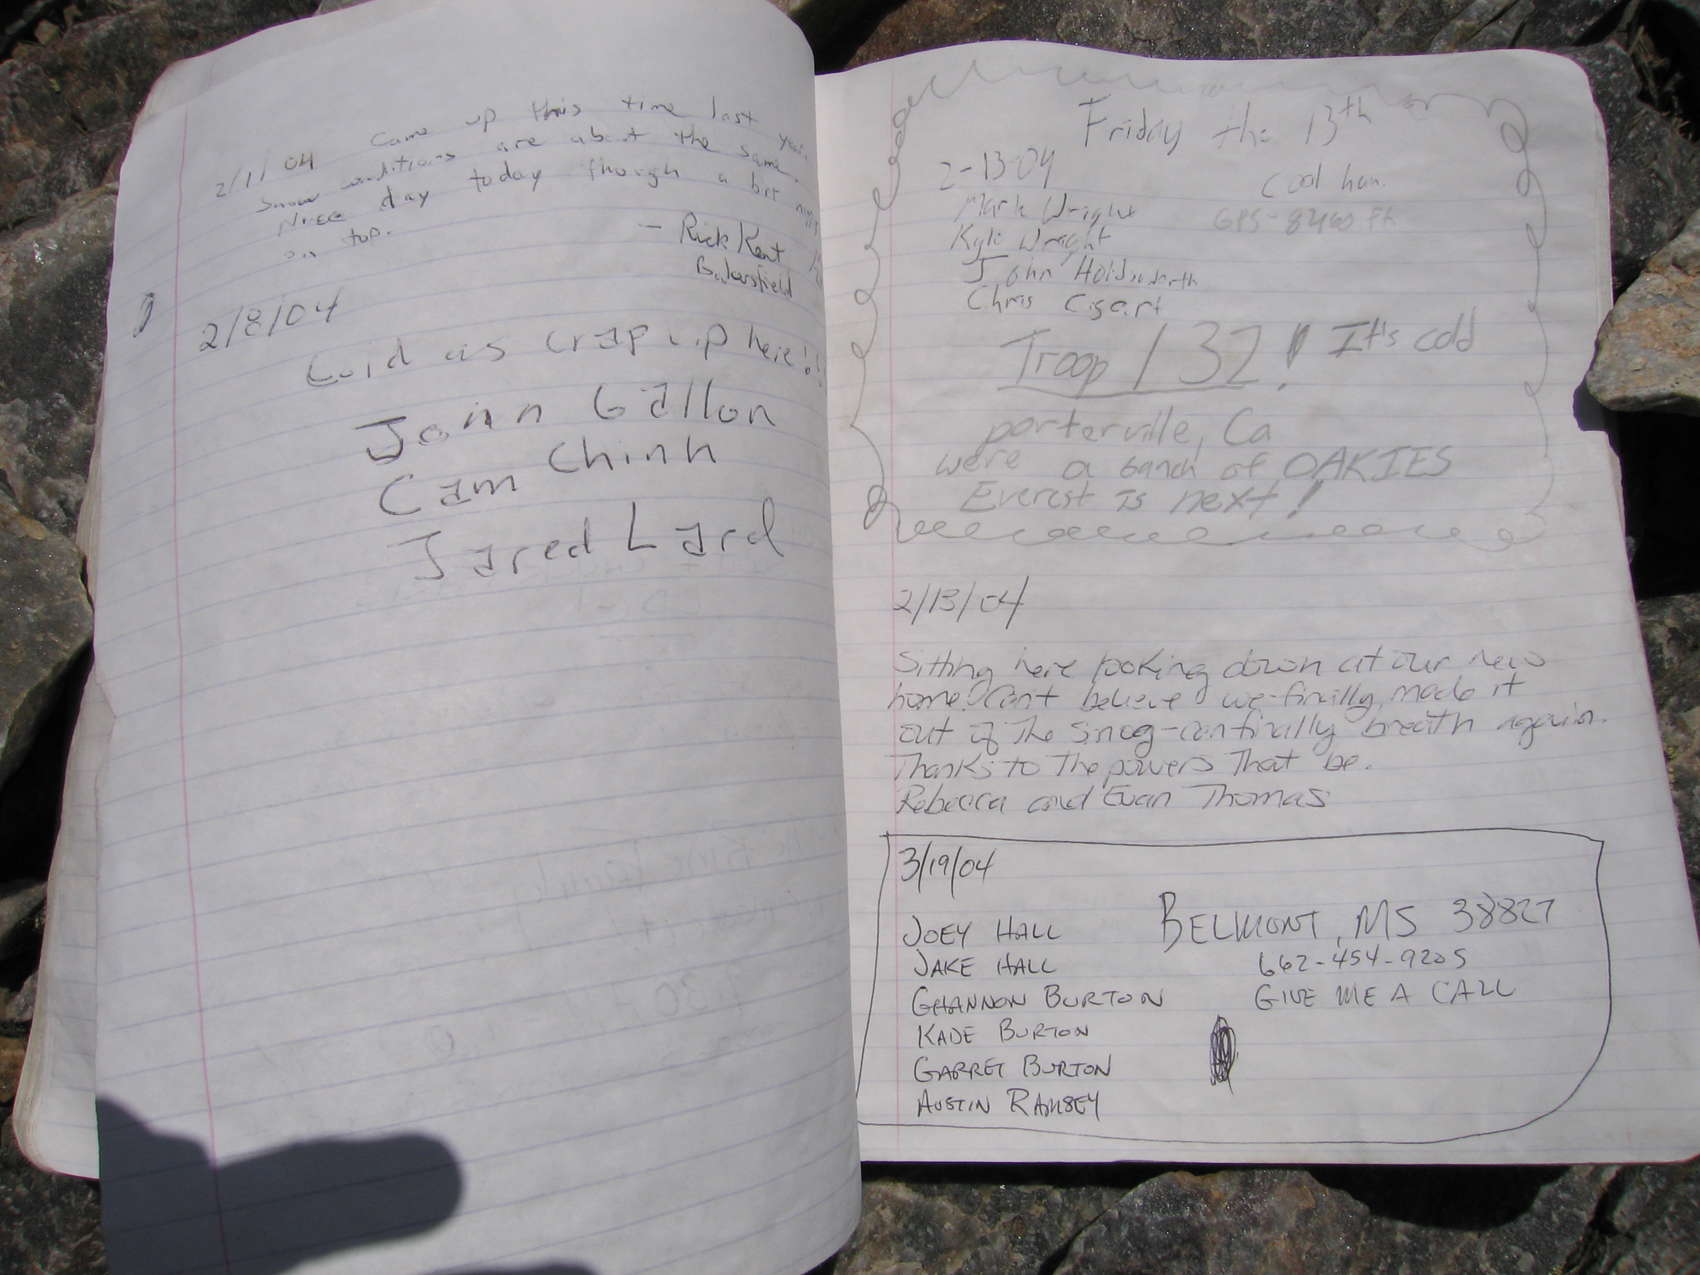 2/11/04 Came up this time last year.
Snow conditions are about the same.
Nice day today though a bit
on top.
- Rick Kent
Bakersfield
2/8/04
Cold as crap up here!!
John Gallon
Cam Chinh
Jared Lard
Friday the 13th
2-13-04
Cool huh.
Mark Wright
GPS- 8460 Ft
Kyle Wright
John Holdsworth
Chris
Troop 132! It's cold
porterville, Ca
were a banch of OAKIES
Everest is next!
2/13/04
Sitting here looking down at our new
home. Cant believe we finally made it
out of the smog-can finally breath again.
Thanks to the powers that be.
Rebecca and Evan Thomas
3/19/04
JOEY HALL
BELMONT, MS 38827
JAKE HALL
662-454-9205
GHANNON BURTON
GIVE ME A CALL
KADE BURTON
GARRET BURTON
AUSTIN RAMSEY